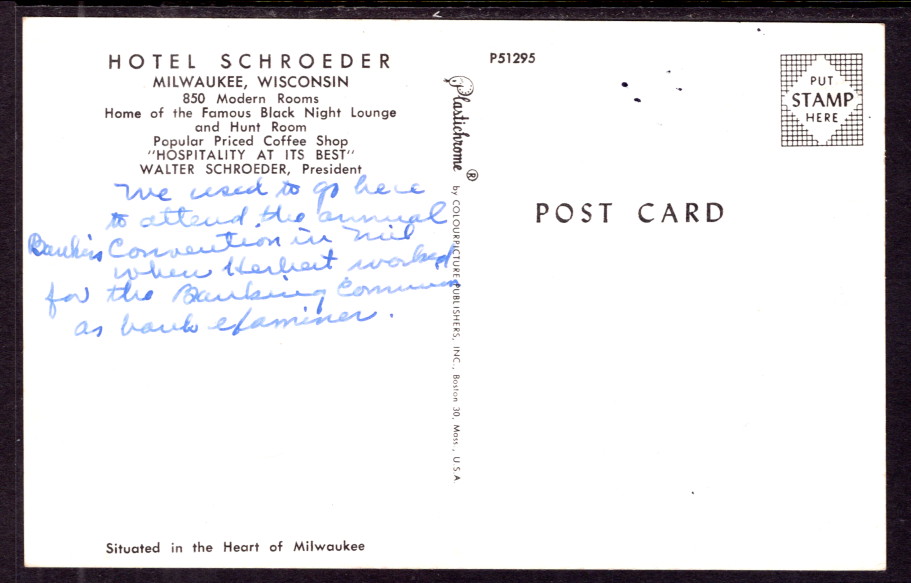 HOTEL SCHROEDER
MILWAUKEE, WISCONSIN
850 Modern Rooms
Home of the Famous Black Night Lounge
and Hunt Room
Popular Priced Coffee Shop
"HOSPITALITY AT ITS BEST"
WALTER SCHROEDER, President
We used to go here
to attend the annual
Bankers Convention in Mil
when Herbert worked
for the Banking
as bank examiner.
Situated in the Heart of Milwaukee
Plastichrome ®
by COLOURPICTURE PUBLISHERS, INC., Boston 30, Mass., U.S.A.
P51295
PUT
STAMP
HERE
POST CARD